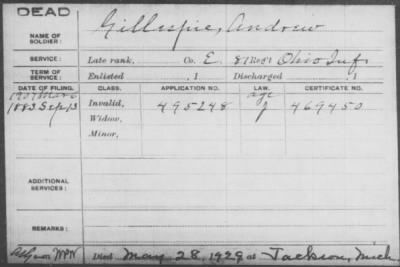 DEAD
Gillespie, Andrew
NAME OF
SOLDIER:
SERVICE: Late rank, Co. E, 87 Regt Ohio Inf.
TERM OF
SERVICE: Enlisted , 1 Discharged , 1
DATE OF FILING. CLASS. APPLICATION NO. LAW. CERTIFICATE NO.
age
1883 Sep 13 Invalid, 495248 469450
Widow,
Minor,
ADDITIONAL
SERVICES:
REMARKS:
Died May 28, 1929 at Jackson, Mich